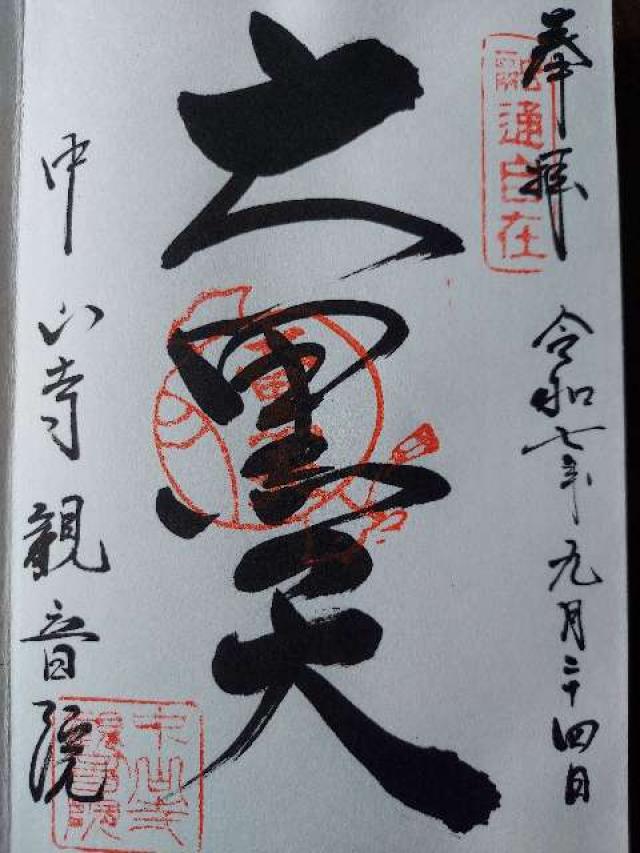 奉拝
融通自在
令和七年九月二十四日
大黒天
中山寺観音院